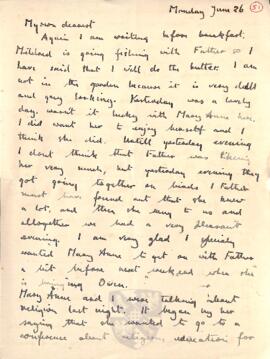 Monday June 26
51
My own dearest
Again I am writing before breakfast.
Millicent is going fishing with Father so I
have said that I will do the butter. I am
not in the garden because it is very dull
and grey looking. Yesterday was a lovely
day, wasn't it lucky with Mary Anne here,
I did want her to enjoy herself and I
think she did. Untill yesterday evening
I dont think that Father was liking
her very much, but yesterday evening they
got going together on birds & Father
must have found out that she knew
a lot, and then she sang to us and
alltogether we had a very pleasant
evening. I am very glad I specialy
wanted Mary Anne to get on with Father
a bit before next weekend when she
is being my Owen.
Mary Anne and I were talking about
religion last night. It began by her
saying that she wanted to go to a
conference about religion, education for